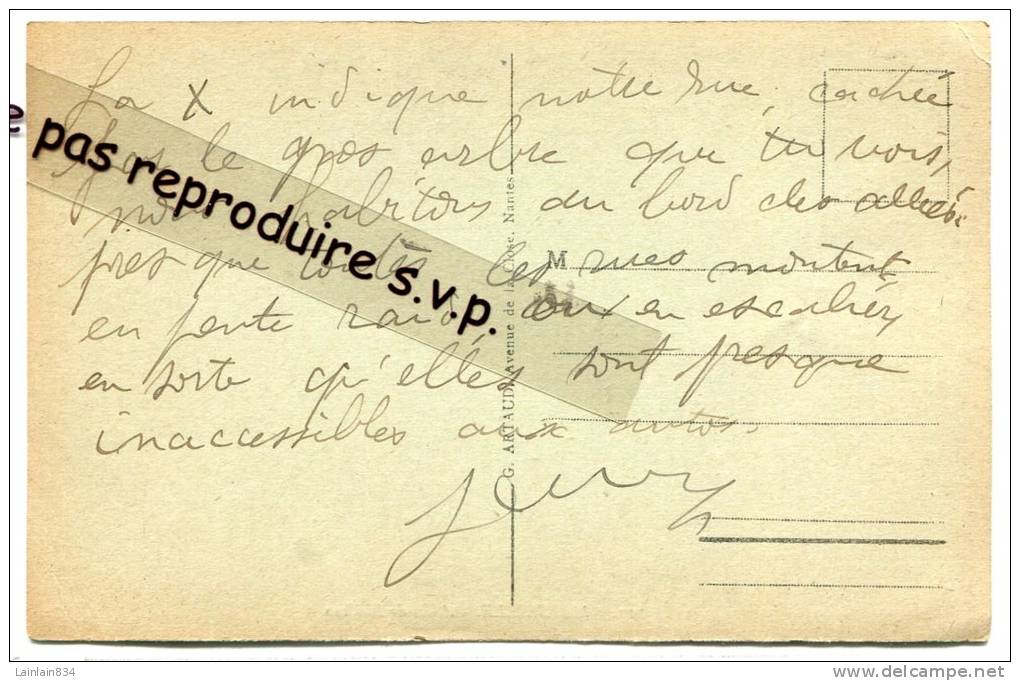 La X indique notre rue, cachée
par le gros arbre que tu vois,
nous habitons au bord des allées
presque toutes les rues montent,
en pente raide, ou en escalier,
en sorte qu'elles sont presque
inaccessibles aux autos.
M
G. ARTAUD, Avenue de la Close, Nantes
pas reproduire s.v.p.
Lainlain834
www.delcampe.net